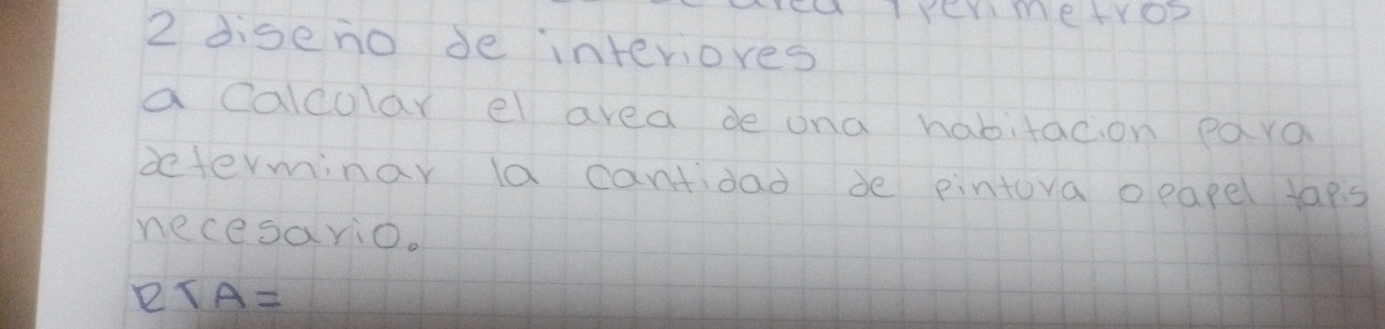 area Y perimetros
2 diseño de interiores
a calcolar el area de una habitacion para
determinar la cantidad de pintura o papel tapis
necesario.
RTA=